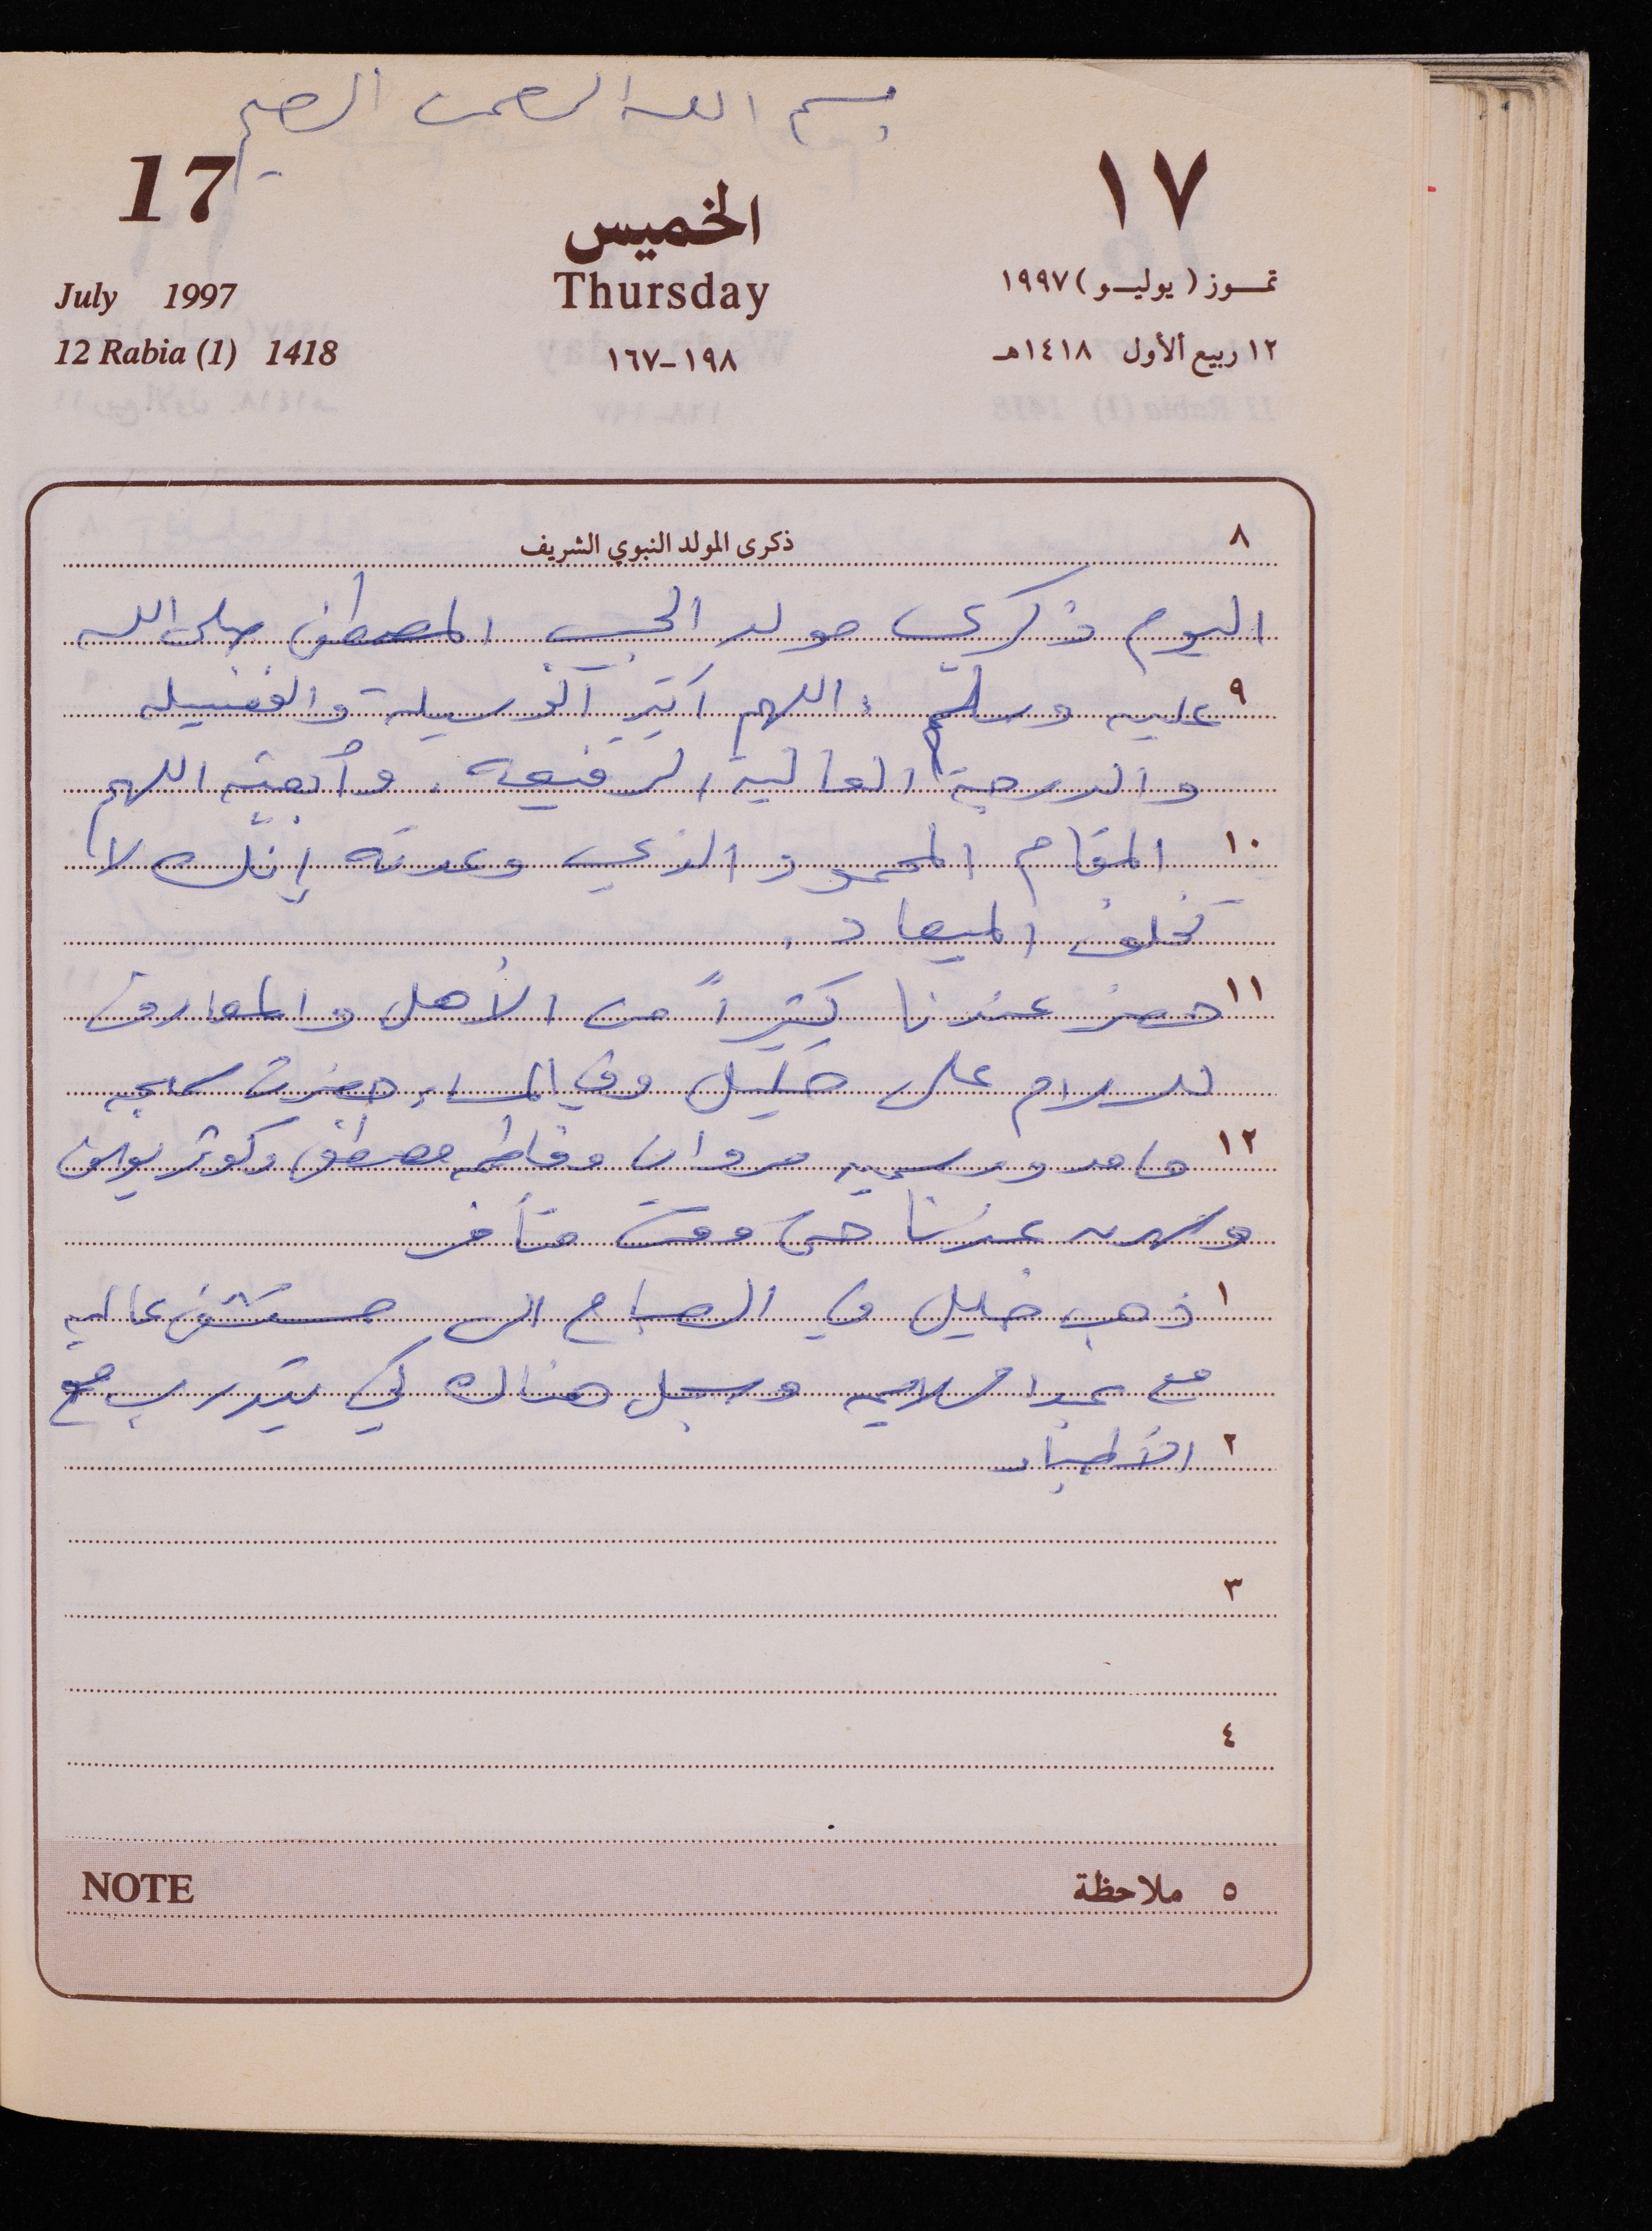 بسم الله الرحمن الرحيم
17
١٧
الخميس
July 1997
Thursday
تمـوز (يوليـو) ١٩٩٧
12 Rabia (1) 1418
١٩٨-١٦٧
١٢ ربيع الأول ١٤١٨هـ
٨
ذكرى المولد النبوي الشريف
اليوم ذكرى مولد الحبيب المصطفى صلى الله
٩ عليه وسلم، اللهم آتيه الوسيلة والفضيله
والدرجة العالية الرفيعه. وأبعثه اللهم
١٠ المقام المحمود الذي وعدته إنك لا
تخلف الميعاد.
١١ حضر عندنا كثيراً من الأهل والمعارف
للسلام على خليل وفي المساء حضرت
١٢ حامد وسميه مروان وفاطمه مصطفى وكوثر
وسهرنه عندنا حتى وقت متأخر
١ ذهب خليل في الصباح الى مستشفى عاليه
مع وسجل هناك لكي يتدرب مع
٢ الأطباء
٣
٤
NOTE
٥ ملاحظة